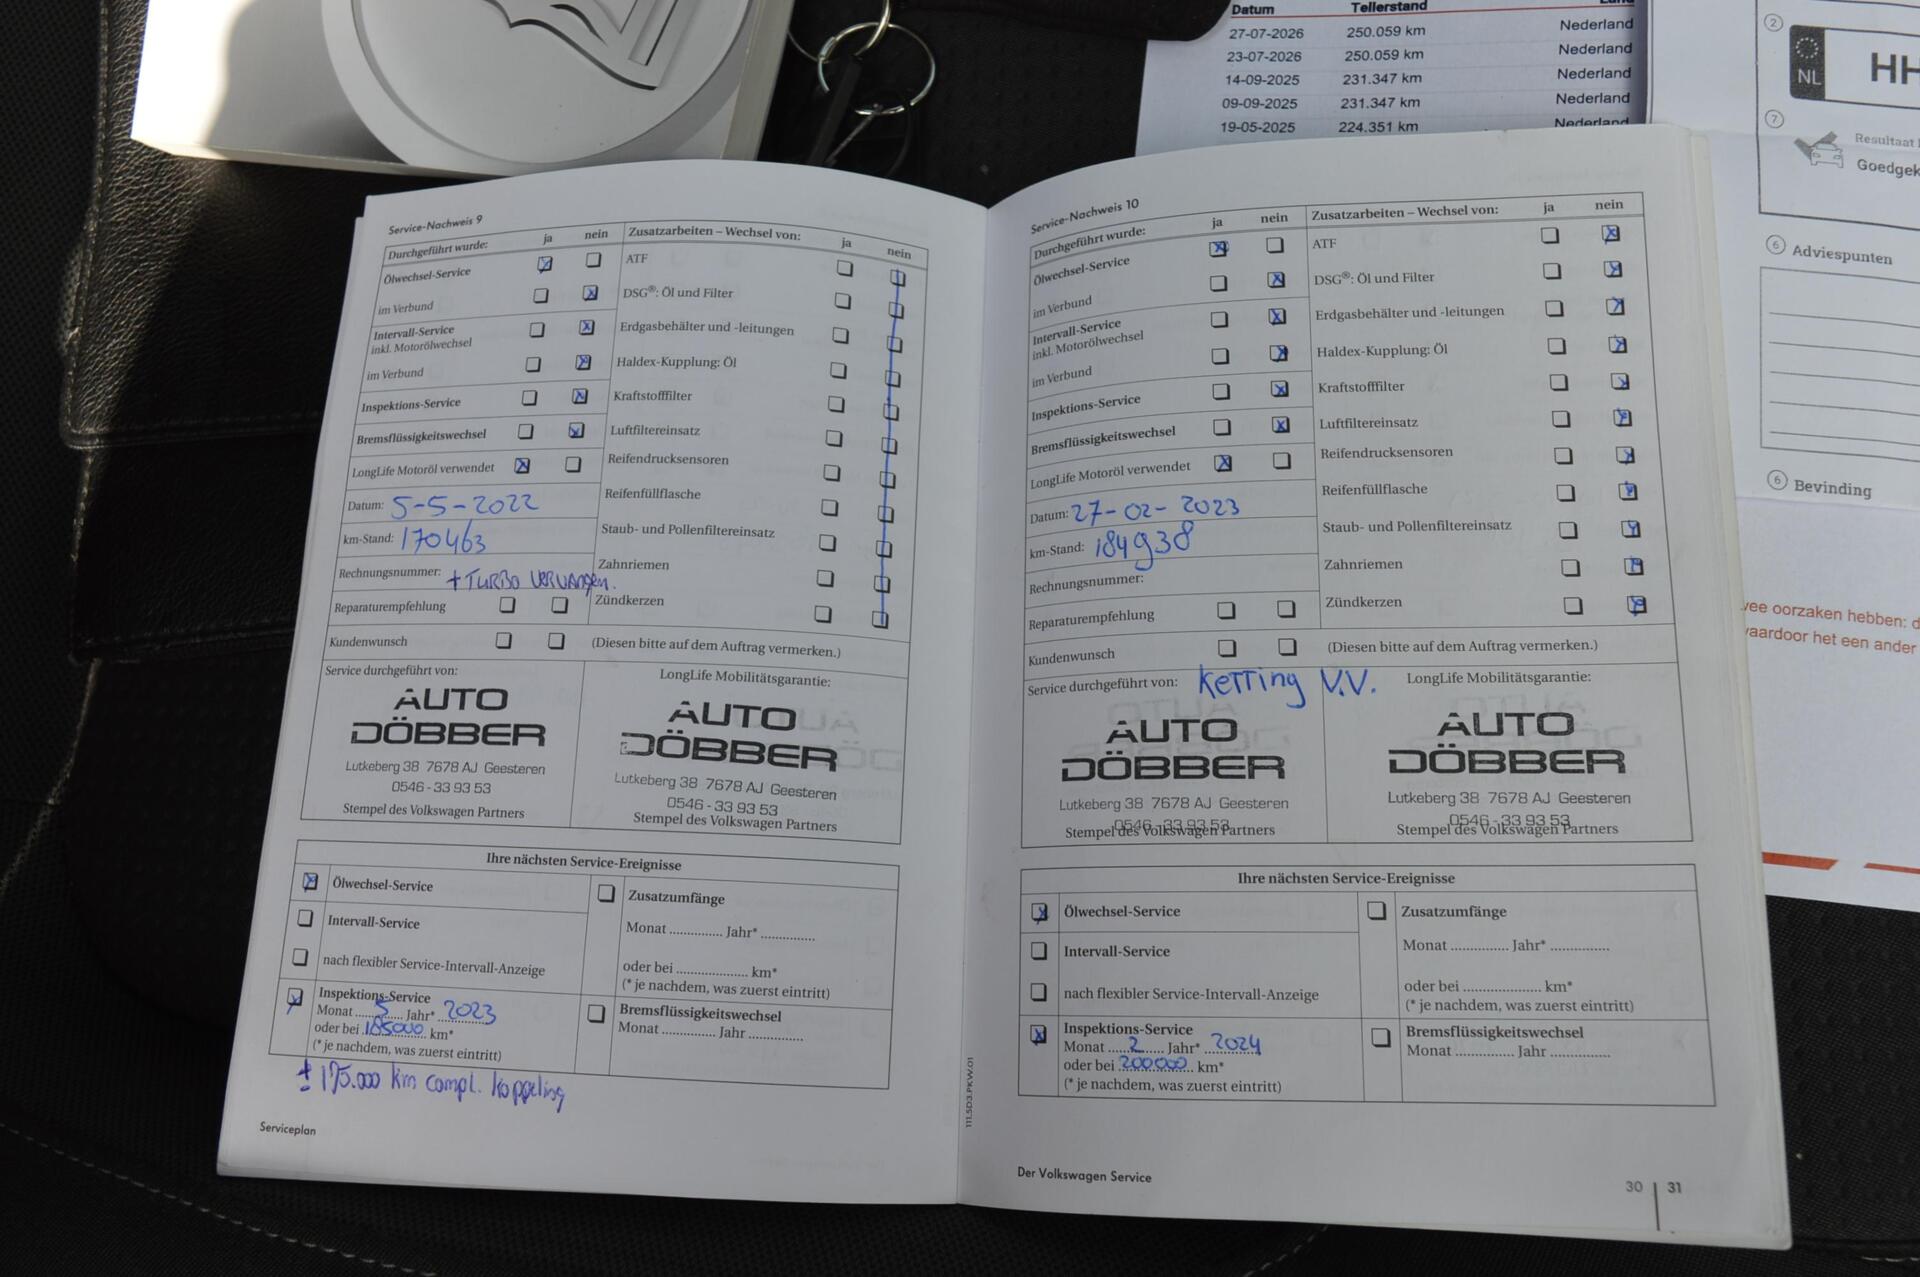 Datum Tellerstand Land
27-07-2026 250.059 km Nederland
23-07-2026 250.059 km Nederland
14-09-2025 231.347 km Nederland
09-09-2025 231.347 km Nederland
19-05-2025 224.351 km Nederland
2
NL HH
7
Resultaat
Goedgek
6 Adviespunten
6 Bevinding
vee oorzaken hebben: d
vaardoor het een ander
Service-Nachweis 9
Durchgeführt wurde: ja nein
Ölwechsel-Service
im Verbund
Intervall-Service
inkl. Motorölwechsel
im Verbund
Inspektions-Service
Bremsflüssigkeitswechsel
LongLife Motoröl verwendet
Datum: 5-5-2022
km-Stand: 170463
Rechnungsnummer: + TURBO VERVANGEN.
Reparaturempfehlung
Kundenwunsch
Zusatzarbeiten – Wechsel von: ja nein
ATF
DSG®: Öl und Filter
Erdgasbehälter und -leitungen
Haldex-Kupplung: Öl
Kraftstofffilter
Luftfiltereinsatz
Reifendrucksensoren
Reifenfüllflasche
Staub- und Pollenfiltereinsatz
Zahnriemen
Zündkerzen
(Diesen bitte auf dem Auftrag vermerken.)
Service durchgeführt von:
AUTO
DÖBBER
Lutkeberg 38 7678 AJ Geesteren
0546 - 33 93 53
Stempel des Volkswagen Partners
LongLife Mobilitätsgarantie:
AUTO
DÖBBER
Lutkeberg 38 7678 AJ Geesteren
0546 - 33 93 53
Stempel des Volkswagen Partners
Ihre nächsten Service-Ereignisse
Ölwechsel-Service
Intervall-Service
nach flexibler Service-Intervall-Anzeige
Inspektions-Service
Monat 5 Jahr* 2023
oder bei 185000 km*
(* je nachdem, was zuerst eintritt)
Zusatzumfänge
Monat ............... Jahr* ...............
oder bei .................... km*
(* je nachdem, was zuerst eintritt)
Bremsflüssigkeitswechsel
Monat ............... Jahr ...............
± 175.000 km compl. koppeling
Serviceplan
111.5D3.PKW.01
Service-Nachweis 10
Durchgeführt wurde: ja nein
Ölwechsel-Service
im Verbund
Intervall-Service
inkl. Motorölwechsel
im Verbund
Inspektions-Service
Bremsflüssigkeitswechsel
LongLife Motoröl verwendet
Datum: 27-02-2023
km-Stand: 184938
Rechnungsnummer:
Reparaturempfehlung
Kundenwunsch
Zusatzarbeiten – Wechsel von: ja nein
ATF
DSG®: Öl und Filter
Erdgasbehälter und -leitungen
Haldex-Kupplung: Öl
Kraftstofffilter
Luftfiltereinsatz
Reifendrucksensoren
Reifenfüllflasche
Staub- und Pollenfiltereinsatz
Zahnriemen
Zündkerzen
(Diesen bitte auf dem Auftrag vermerken.)
Service durchgeführt von: Ketting V.V.
AUTO
DÖBBER
Lutkeberg 38 7678 AJ Geesteren
0546 - 33 93 53
Stempel des Volkswagen Partners
LongLife Mobilitätsgarantie:
AUTO
DÖBBER
Lutkeberg 38 7678 AJ Geesteren
0546 - 33 93 53
Stempel des Volkswagen Partners
Ihre nächsten Service-Ereignisse
Ölwechsel-Service
Intervall-Service
nach flexibler Service-Intervall-Anzeige
Inspektions-Service
Monat 2 Jahr* 2024
oder bei 200000 km*
(* je nachdem, was zuerst eintritt)
Zusatzumfänge
Monat ............... Jahr* ...............
oder bei .................... km*
(* je nachdem, was zuerst eintritt)
Bremsflüssigkeitswechsel
Monat ............... Jahr ...............
Der Volkswagen Service
30 | 31